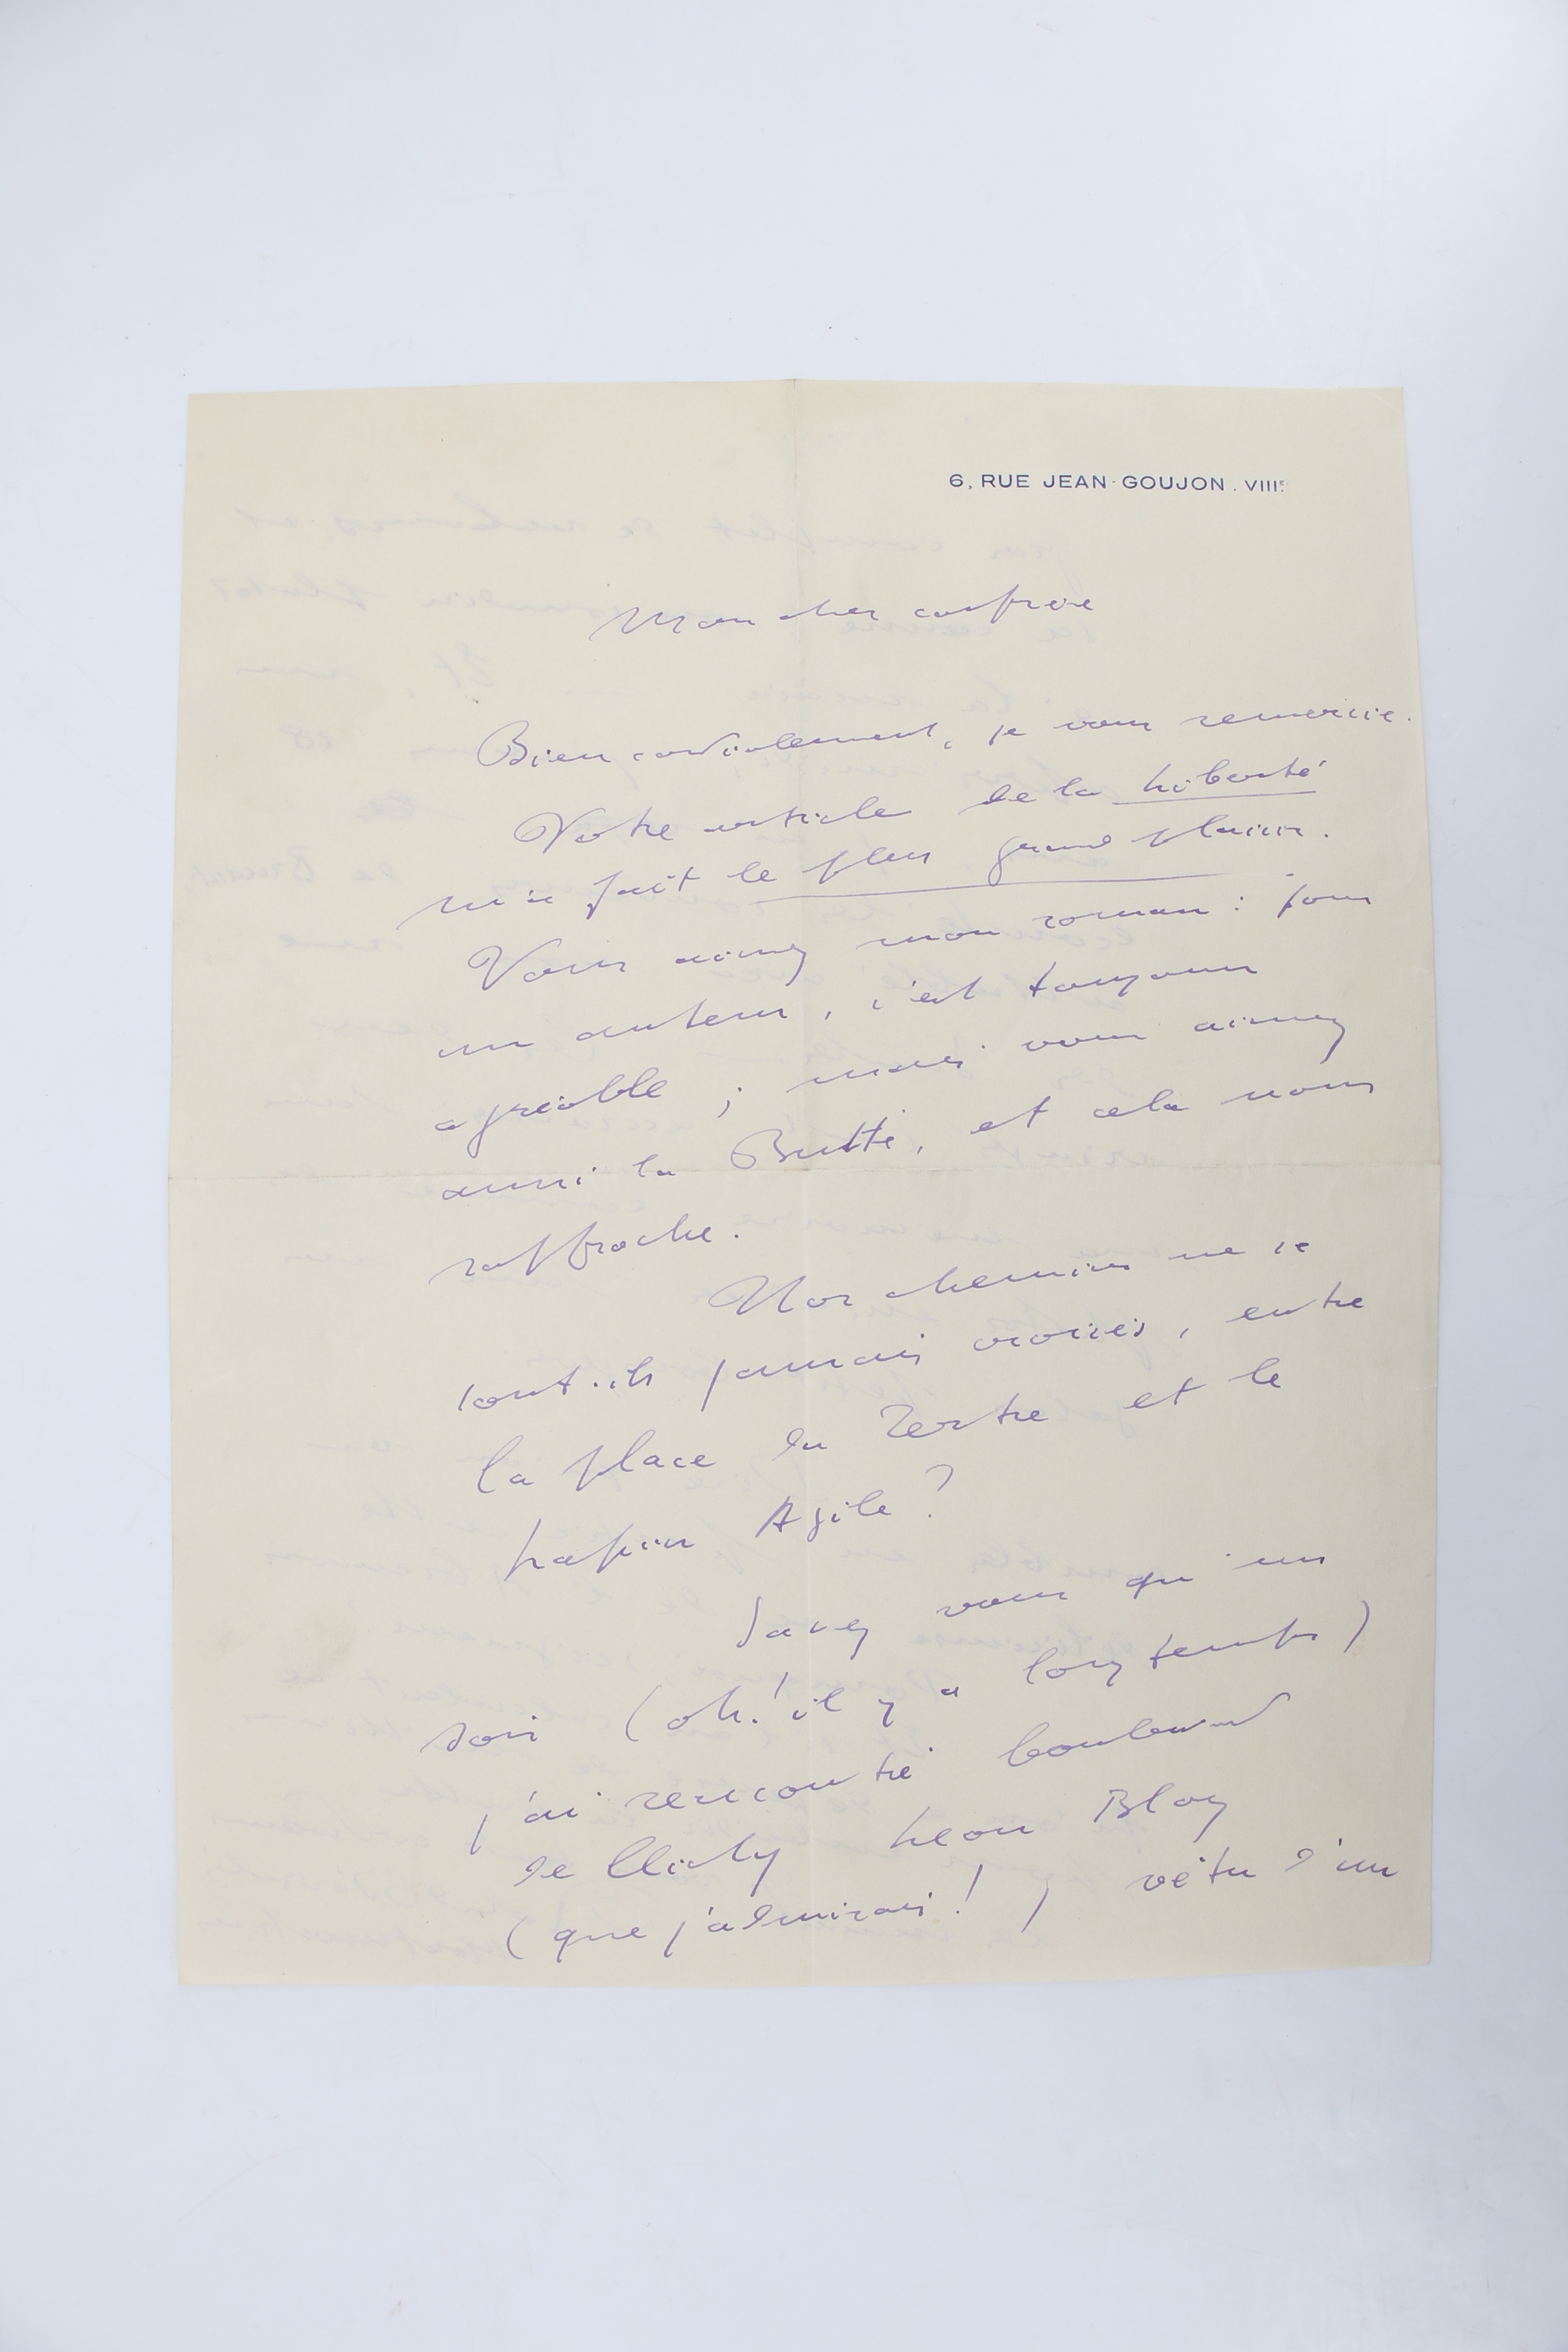 6, RUE JEAN-GOUJON. VIIIE
Mon cher confrère
Bien cordialement, je vous remercie.
Votre article de la Liberté
m'a fait le plus grand plaisir.
Vous aimez mon roman : pour
un auteur, c'est toujours
agréable ; mais vous aimez
aussi la Butte, et cela nous
rapproche.
Nos chemins ne se
sont-ils jamais croisés, entre
la place du Tertre et le
Lapin Agile ?
Savez vous qu'un
soir (oh! il y a longtemps)
j'ai rencontré boulevard
de Clichy Léon Bloy
(que j'admirais!) vêtu d'un